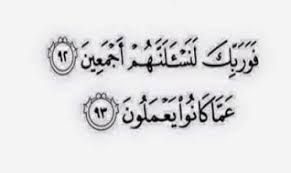 فَوَرَبِّكَ لَنَسْـَٔلَنَّهُمْ أَجْمَعِينَ ٩٢
عَمَّا كَانُوا۟ يَعْمَلُونَ ٩٣